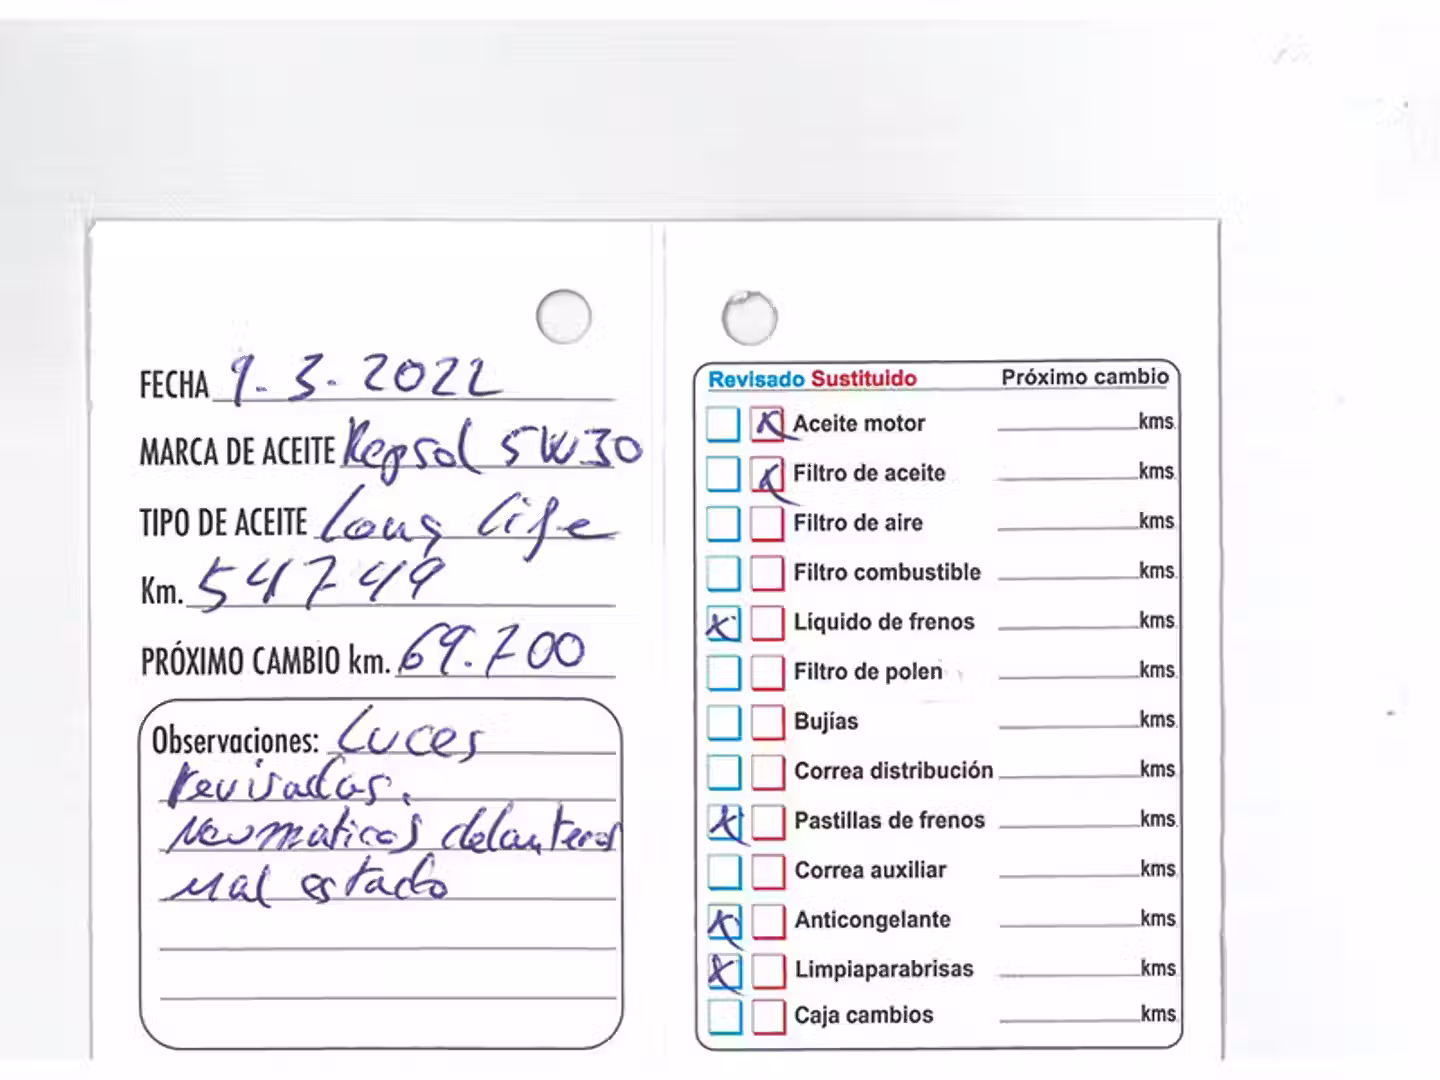 FECHA 9-3-2022
MARCA DE ACEITE Repsol 5W30
TIPO DE ACEITE Long Life
Km. 54749
PRÓXIMO CAMBIO km. 69.700
Observaciones: Luces
revisadas.
Neumaticos delanteros
mal estado
Revisado Sustituido Próximo cambio
Aceite motor kms.
Filtro de aceite kms.
Filtro de aire kms.
Filtro combustible kms.
Líquido de frenos kms.
Filtro de polen kms.
Bujías kms.
Correa distribución kms.
Pastillas de frenos kms.
Correa auxiliar kms.
Anticongelante kms.
Limpiaparabrisas kms.
Caja cambios kms.